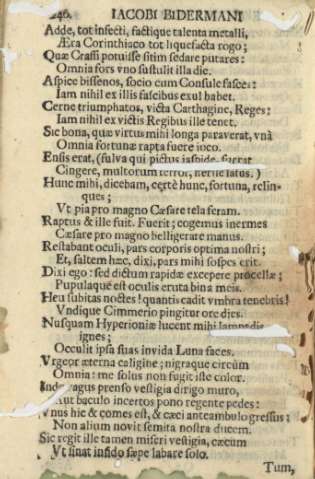 246. IACOBI BIDERMANI
Adde, tot infecti, factique talenta metalli,
Æra Corinthiaco tot liquefacta rogo;
Quæ Crassi potuisse sitim sedare putares:
Omnia fors vno sustulit illa die.
Aspice bissenos, socio cum Consule fasces:
Iam nihil ex illis fascibus exul habet.
Cerne triumphatos, victa Carthagine, Reges:
Iam nihil ex victis Regibus ille tenet.
Sic bona, quæ virtus mihi longa paraverat, vnâ
Omnia fortunæ rapta fuere ioco.
Ensis erat, (fulva qui pictus iaspide, fuerat
Cingere, multorum terror, herile latus.)
Hunc mihi, dicebam, certè hunc, fortuna, relin-
ques;
Vt pia pro magno Cæsare tela feram.
Raptus & ille fuit. Fuerit; cogemus inermes
Cæsare pro magno belligerare manus.
Restabant oculi, pars corporis optima nostri;
Et, saltem hæc, dixi, pars mihi sospes erit.
Dixi ego: sed dictum rapidæ excepere procellæ;
Pupulaque est oculis eruta bina meis.
Heu subitas noctes! quantis cadit vmbra tenebris!
Vndique Cimmerio pingitur ore dies.
Nusquam Hyperioniæ lucent mihi lampadis
ignes;
Occulit ipsa suas invida Luna faces.
Vrgeor æterna caligine; nigraque circùm
Omnia: me solus non fugit iste color.
Inde vagus prenso vestigia dirigo muro,
Aut baculo incertos pono regente pedes:
Vnus hic & comes est, & cæci anteambulo gressus;
Non alium novit semita nostra ducem.
Sic regit ille tamen miseri vestigia, cæcum
Vt sinat infido sæpe labare solo.
Tum,